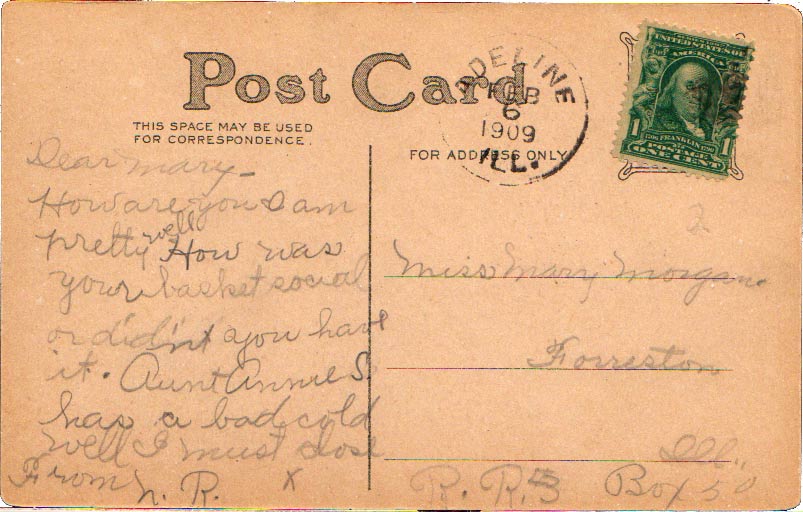 Post Card
THIS SPACE MAY BE USED
FOR CORRESPONDENCE.
FOR ADDRESS ONLY
ADELINE
FEB
6
1909
ILL.
UNITED STATES OF
AMERICA
1706 FRANKLIN 1790
1 1
POSTAGE
ONE CENT
Dear Mary -
How are you I am
pretty well How was
your basket social
or didn't you have
it. Aunt Annie S.
has a bad cold
well I must close
From N. R. x
2
Miss Mary Morgan.
Forreston
Ill.,
R. R. 3 Box 50